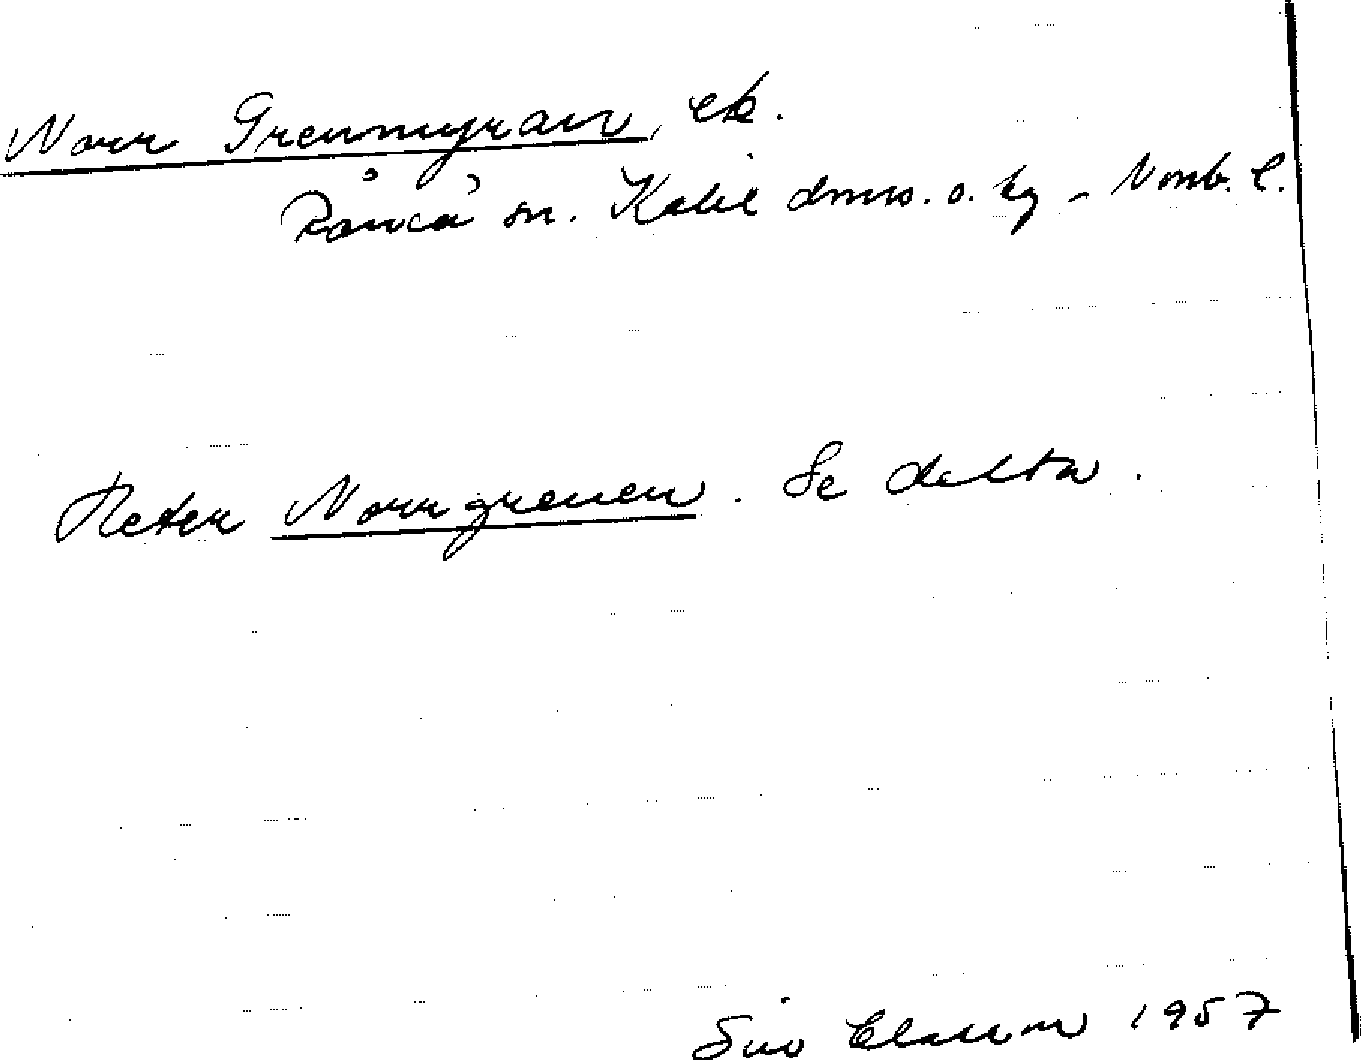 Norr Grenmyran, ek.
Råneå sn. Kalix dmrs. o. tg – Norrb. l.
Heter Norrgrenen. Se detta.
Siv Elasson 1957